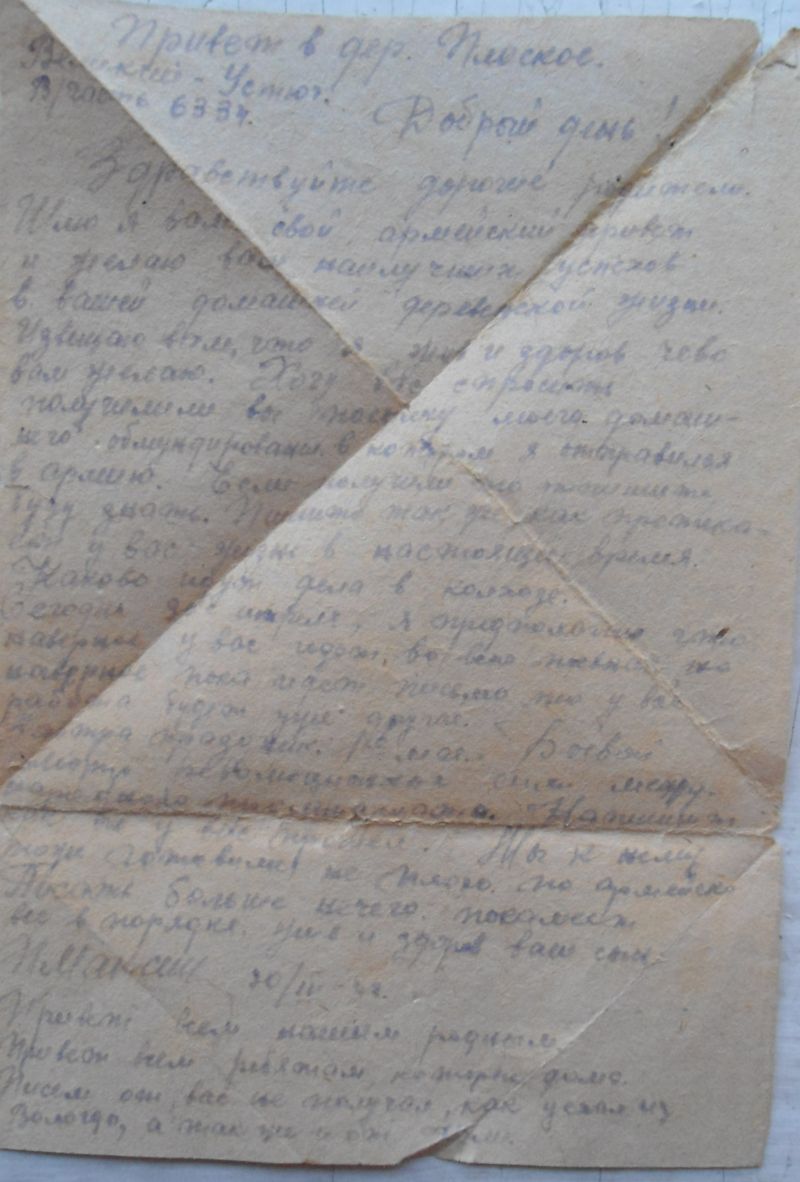 Привет в дер. Плоское.
Великий-Устюг.
В/часть 6334.
Добрый день!
Здравствуйте дорогие родители.
Шлю я вам свой армейский привет
и желаю вам наилучших успехов
в вашей домашней деревенской жизни.
Извещаю вам, что я жив и здоров чево
вам желаю. Хочу вас спросить
получилили вы посылку моего домаш-
него обмундирования в котором я отправился
в армию. Если получили то напишите
буду знать. Пишите так же как протека-
ет у вас жизнь в настоящее время.
Каково идут дела в колхозе.
Сегодня 30 апреля, я предполагаю что
наверное у вас идет во всю но
наверное пока идет письмо то у вас
работа будет уже другая.
Завтра праздник. 1е мая. Боевой
смотр революционных сил между-
народного пролетариата. Напишите
как он у вас прошел. Мы к нему
готовились не плохо по армейски
Писать больше нечего покамест
все в порядке, жив и здоров ваш сын.
30/IV
Привет всем нашим родным
Привет всем ребятам которые дома.
Писем от вас не получал, как уехал из
Вологды, а так же и от